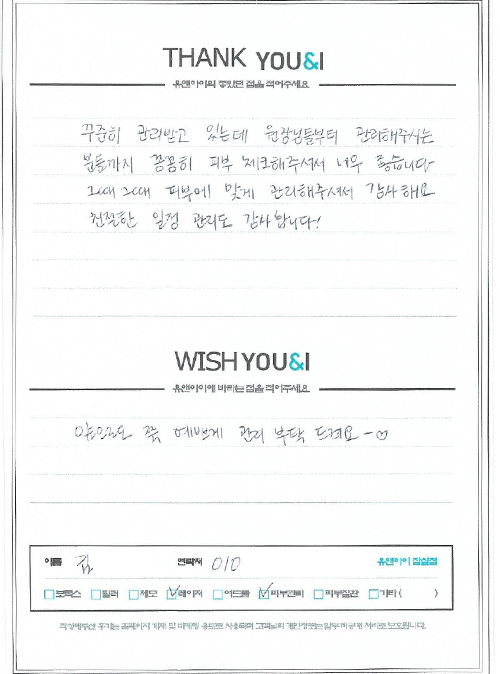 THANK YOU&I
유앤아이의 좋았던 점을 적어주세요
꾸준히 관리받고 있는데 원장님들부터 관리해주시는
분들까지 꼼꼼히 피부 체크해주셔서 너무 좋습니다
그때 그때 피부에 맞게 관리해주셔서 감사해요
친절한 일정 관리도 감사합니다!
WISH YOU&I
유앤아이에 바라는 점을 적어주세요
앞으로도 쭉 예쁘게 관리 부탁 드려요~♡
이름 김 연락처 010 유앤아이 잠실점
□보톡스 □필러 □제모 ☑레이저 □여드름 ☑피부관리 □피부질환 □기타 ( )